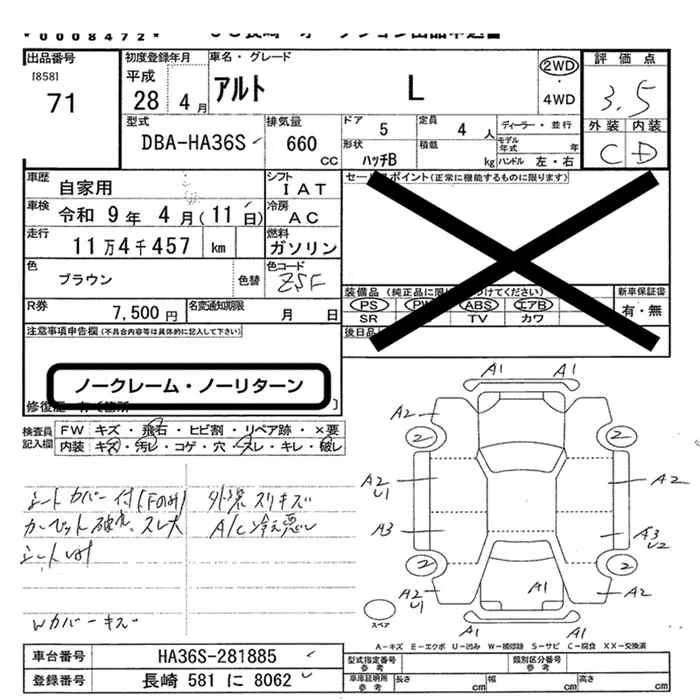 *0008472*
出品番号
[858]
71
初度登録年月
平成
28 4月
車名・グレード
アルト L
2WD
・
4WD
評価点
3.5
外装 内装
C D
型式
DBA-HA36S
排気量
660
CC
ドア 5
定員 4人
ディーラー・並行
形状
ハッチB
積載 kg
モデル年式 年
ハンドル 左・右
車歴
自家用
シフト
IAT
車検
令和 9年 4月(11日)
冷房
AC
走行
11万4千457 km
燃料
ガソリン
色
ブラウン
色替
色コード
ZSF
R券
7,500円
名変通知期限
月 日
セールスポイント(正常に機能するものに限ります)
PS
ABS
エアB
SR
TV
カワ
新車保証書
有・無
注意事項申告欄(不具合内容等は具体的に記入して下さい)
ノークレーム・ノーリターン
検査員
記入欄
FW キズ・飛石・ヒビ割・リペア跡・×要
内装 キズ・汚レ・コゲ・穴・スレ・キレ・破レ
シートカバー付(Fのみ) 外装スリキズ
カーペット破れ、スレ大 A/C冷え悪し
Wカバーキズ
A1 A1
A2
2 2
A2
U1
A2
A3
A3
U2
2 2
A2
U1
A1
A2
A1 A1
スペア
A-キズ E-エクボ U-凹み W-補修跡 S-サビ C-腐食 XX-交換済
車台番号
HA36S-281885
登録番号
長崎 581 に 8062
型式指定番号
参考
類別区分番号
参考
車庫証明用
参考
長さ cm
幅 cm
高さ cm